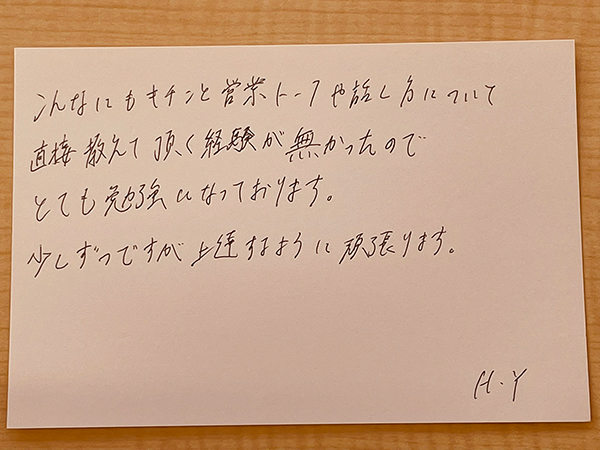 こんなにもキチンと営業トークや話し方について
直接教えて頂く経験が無かったので
とても勉強になっております。
少しずつですが上達するように頑張ります。
H.Y